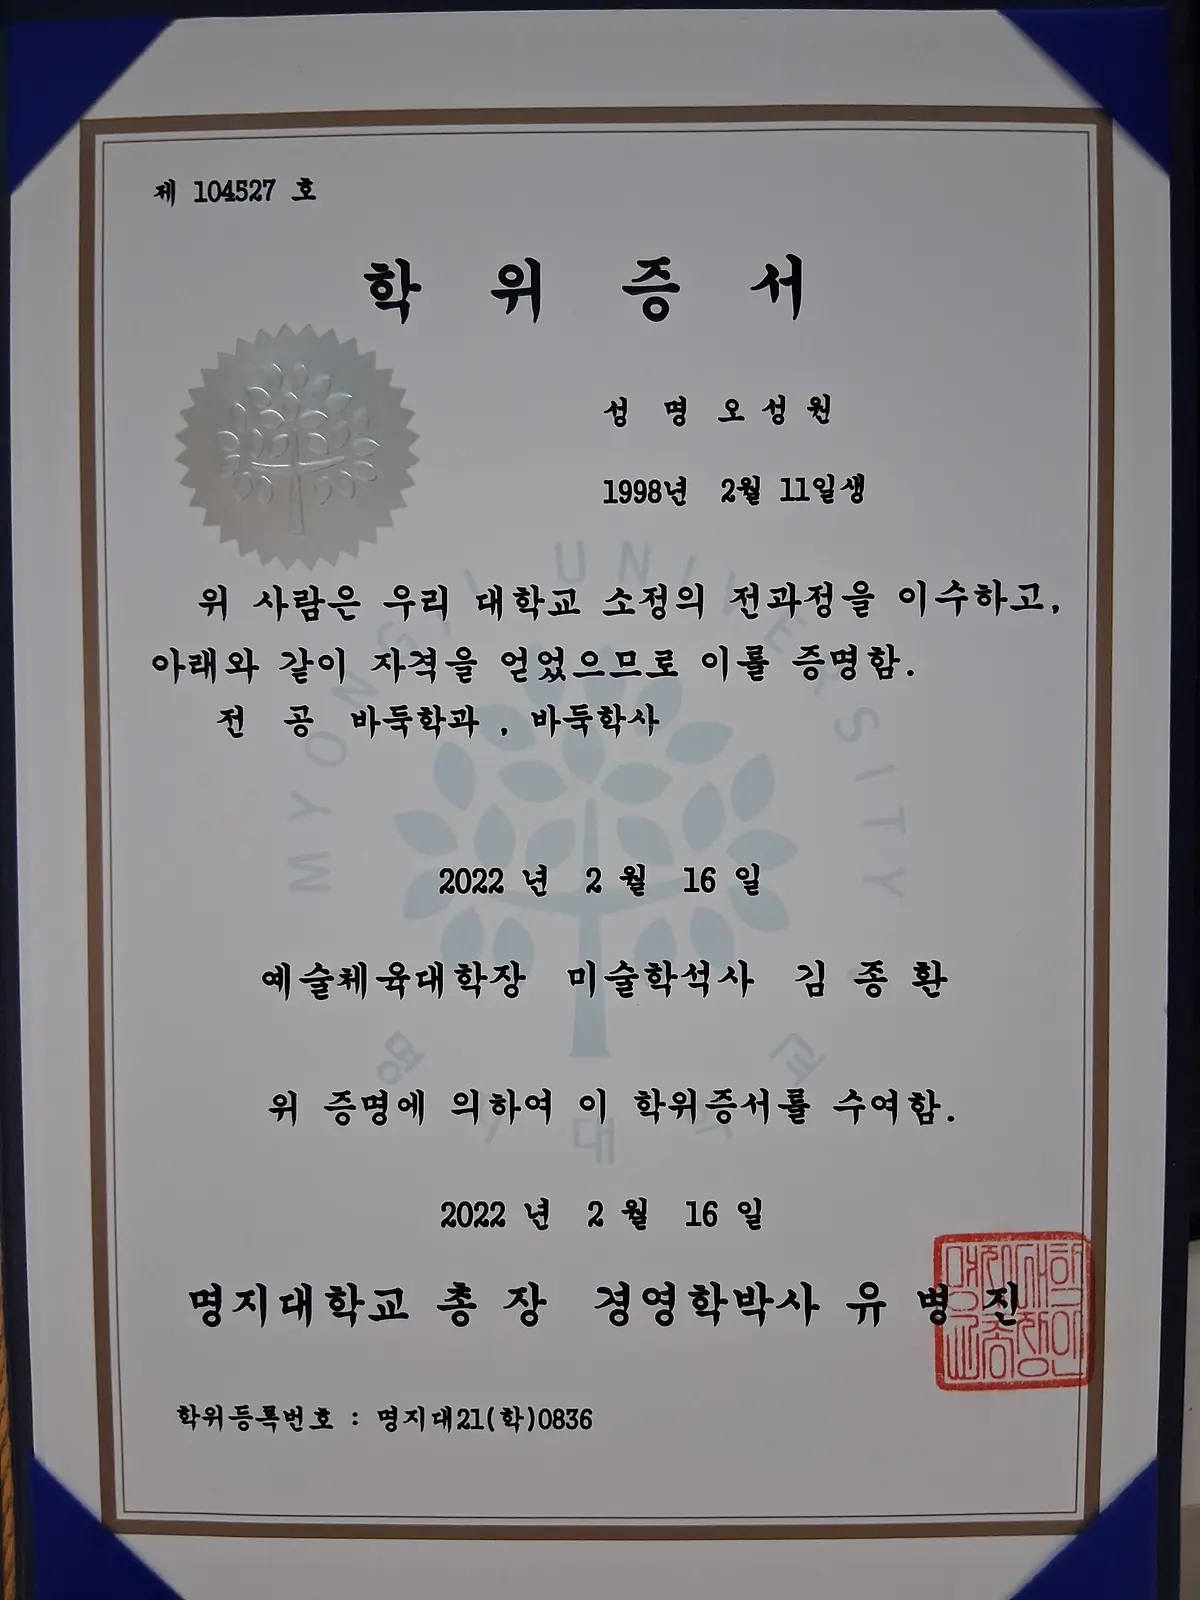 제 104527 호
학 위 증 서
성 명 오 성 원
1998년 2월 11일생
MYONGJI UNIVERSITY
위 사람은 우리 대학교 소정의 전과정을 이수하고,
아래와 같이 자격을 얻었으므로 이를 증명함.
전 공 바둑학과 , 바둑학사
2022 년 2 월 16 일
예술체육대학장 미술학석사 김 종 환
명지대학교
위 증명에 의하여 이 학위증서를 수여함.
2022 년 2 월 16 일
명지대학교 총 장 경영학박사 유 병 진
명지대학교총장인
학위등록번호 : 명지대21(학)0836